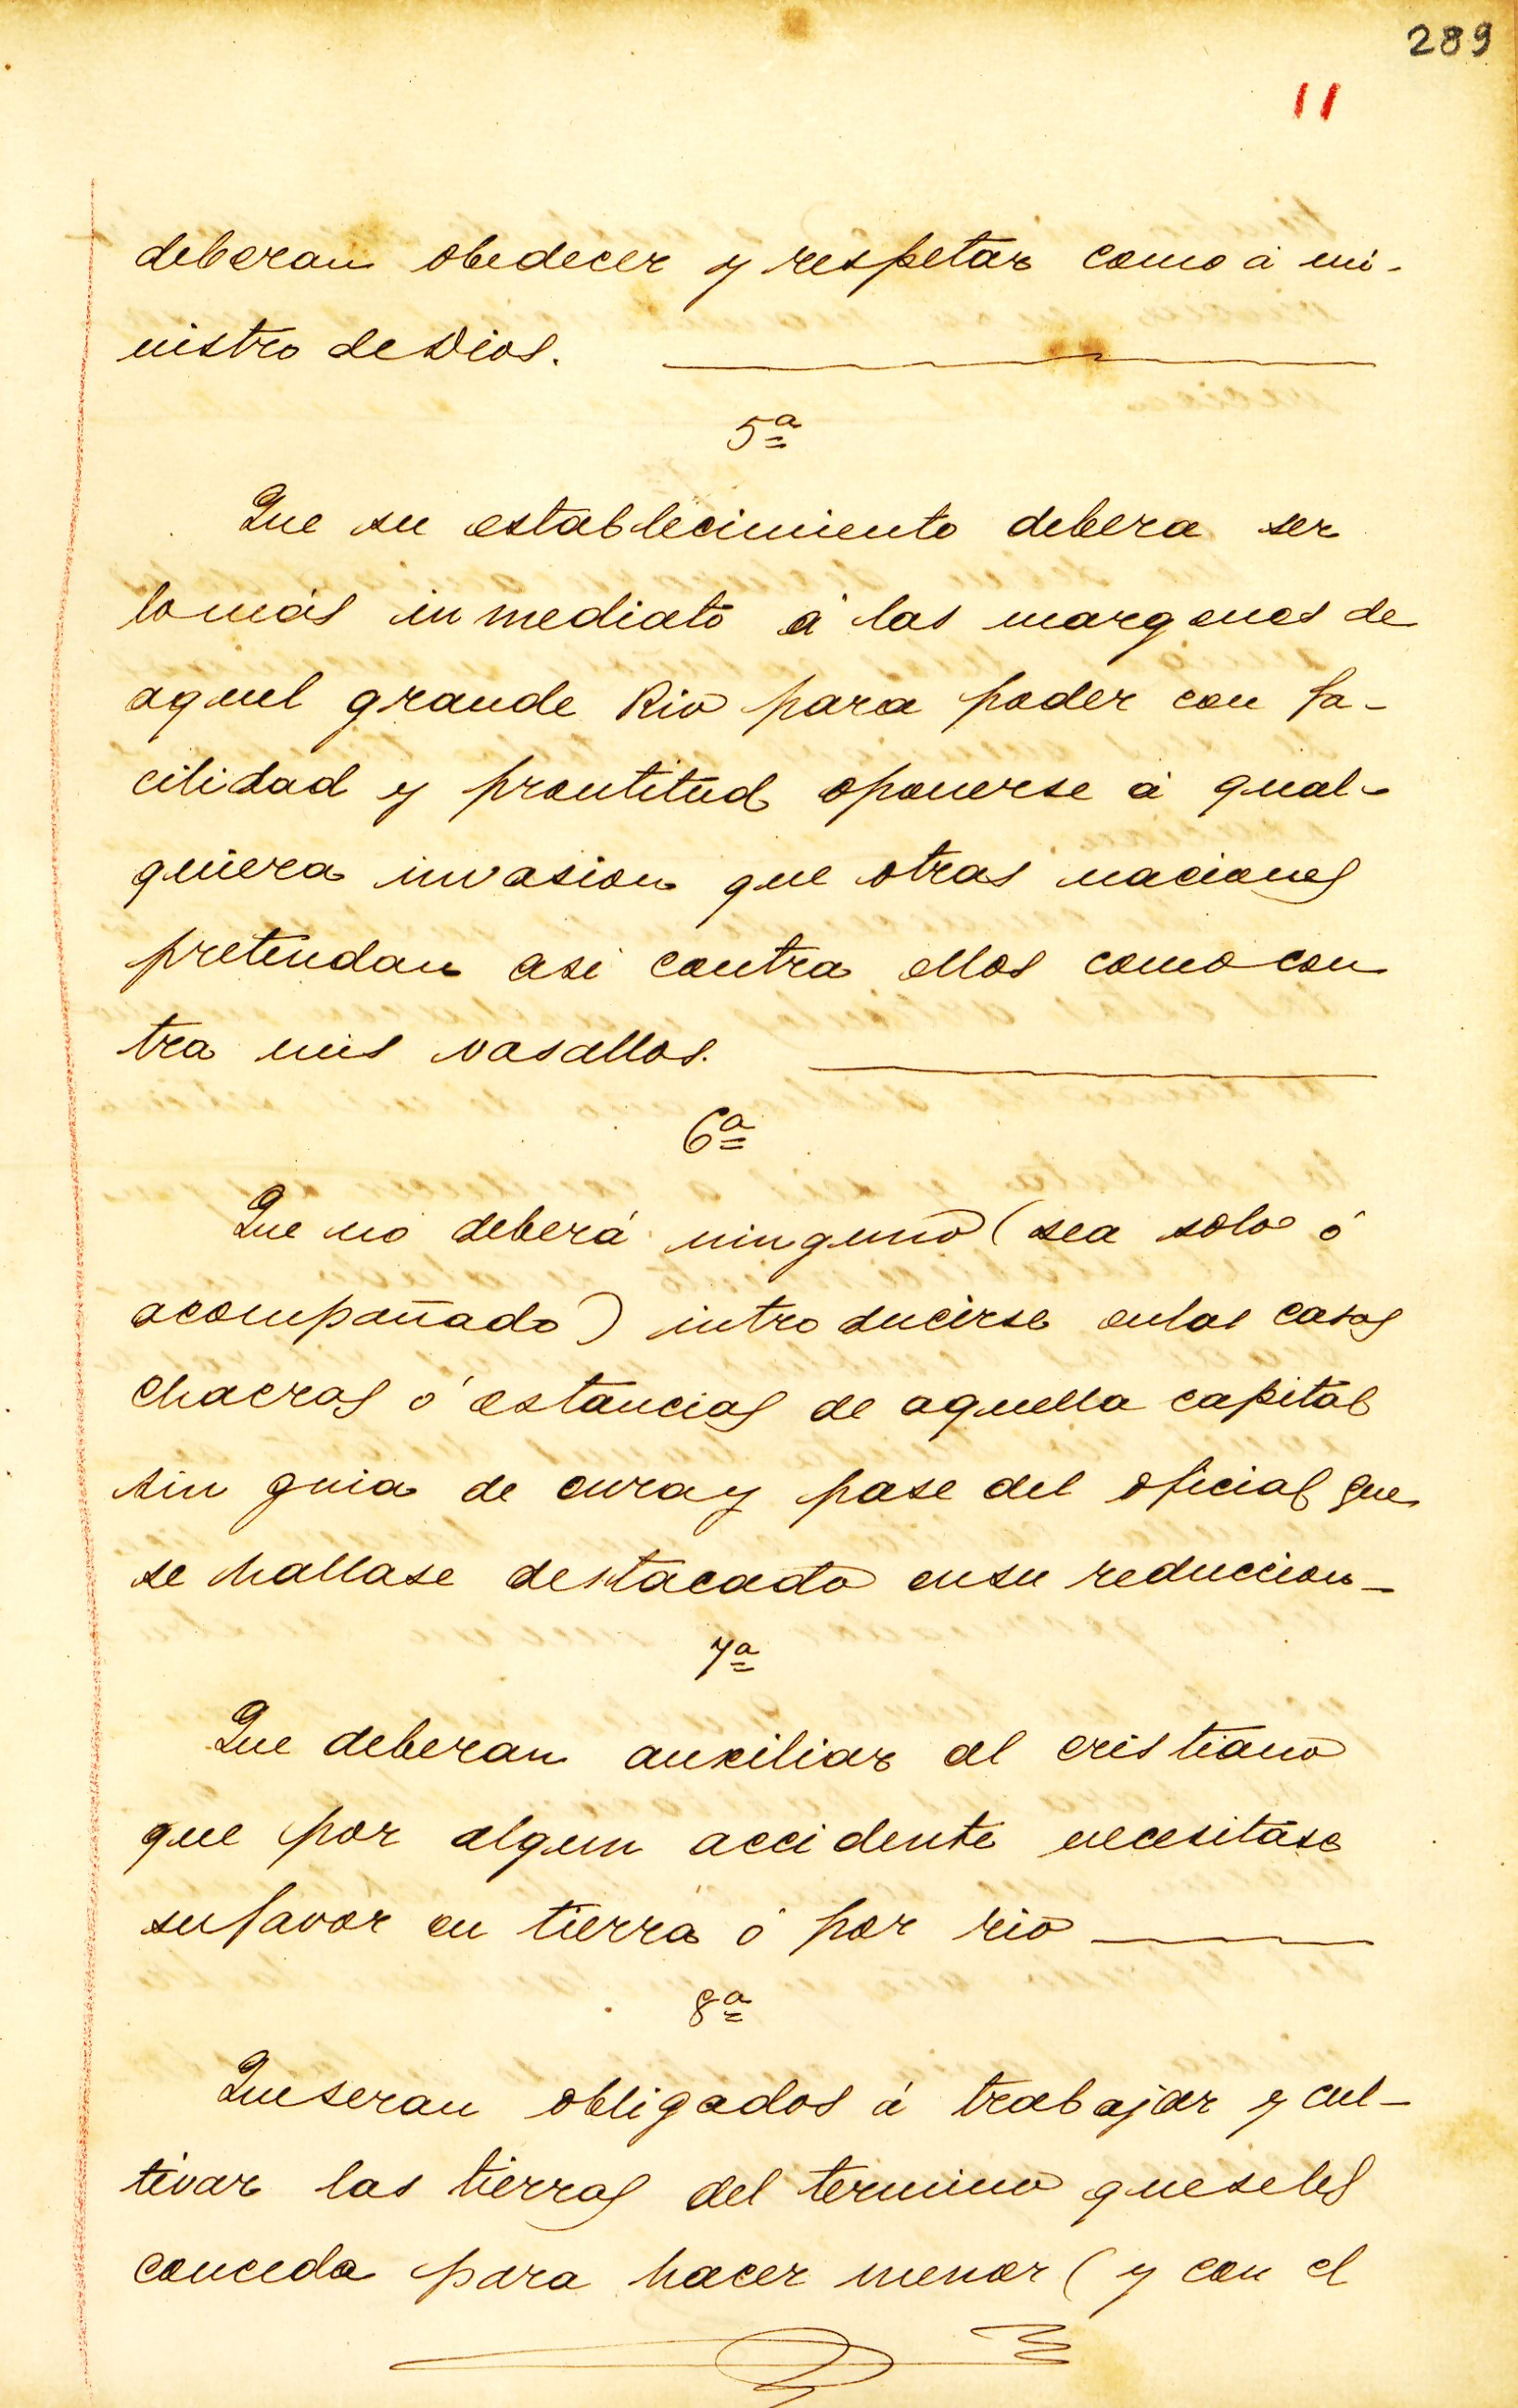 289
11
deberan obedecer y respetar como à mi-
nistro de Dios.
5ª
Que su establecimiento debera ser
lo más inmediato à las margenes de
aquel grande Rio para poder con fa-
cilidad y prontitud oponerse à qual-
quiera invasion que otras naciones
pretendan asi contra ellos como con
tra mis vasallos.
6ª
Que no deberá ninguno (sea solo ó
acompañado) introducirse en las casas
chacras ó estancias de aquella capital
sin guia de cura y pase del oficial que
se hallase destacado en su reduccion_
7ª
Que deberan auxiliar al cristiano
que por algun accidente necesitase
su favor en tierra ó por rio
8ª
Que seran obligados á trabajar y cul-
tivar las tierras del termino que se les
conceda para hacer menor (y con el